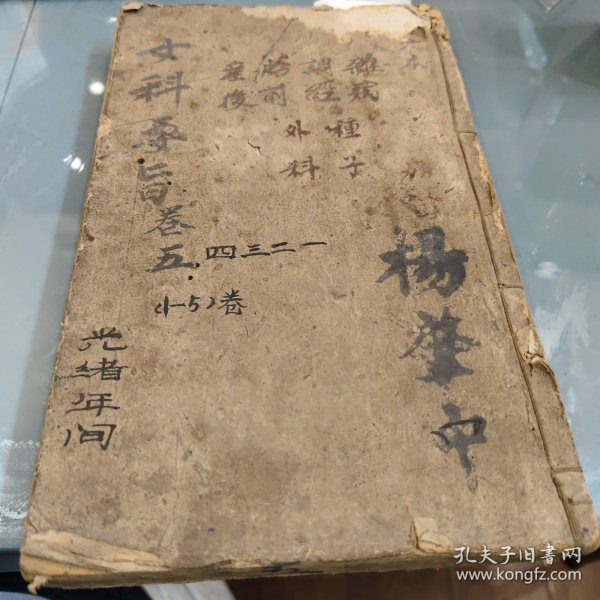 楊肇甲
本
雜病
調經
胎前
產後
種子
外科
女科要旨卷五.四三二一
(1-5)卷
光绪年间
孔夫子旧书网
www.kongfz.com